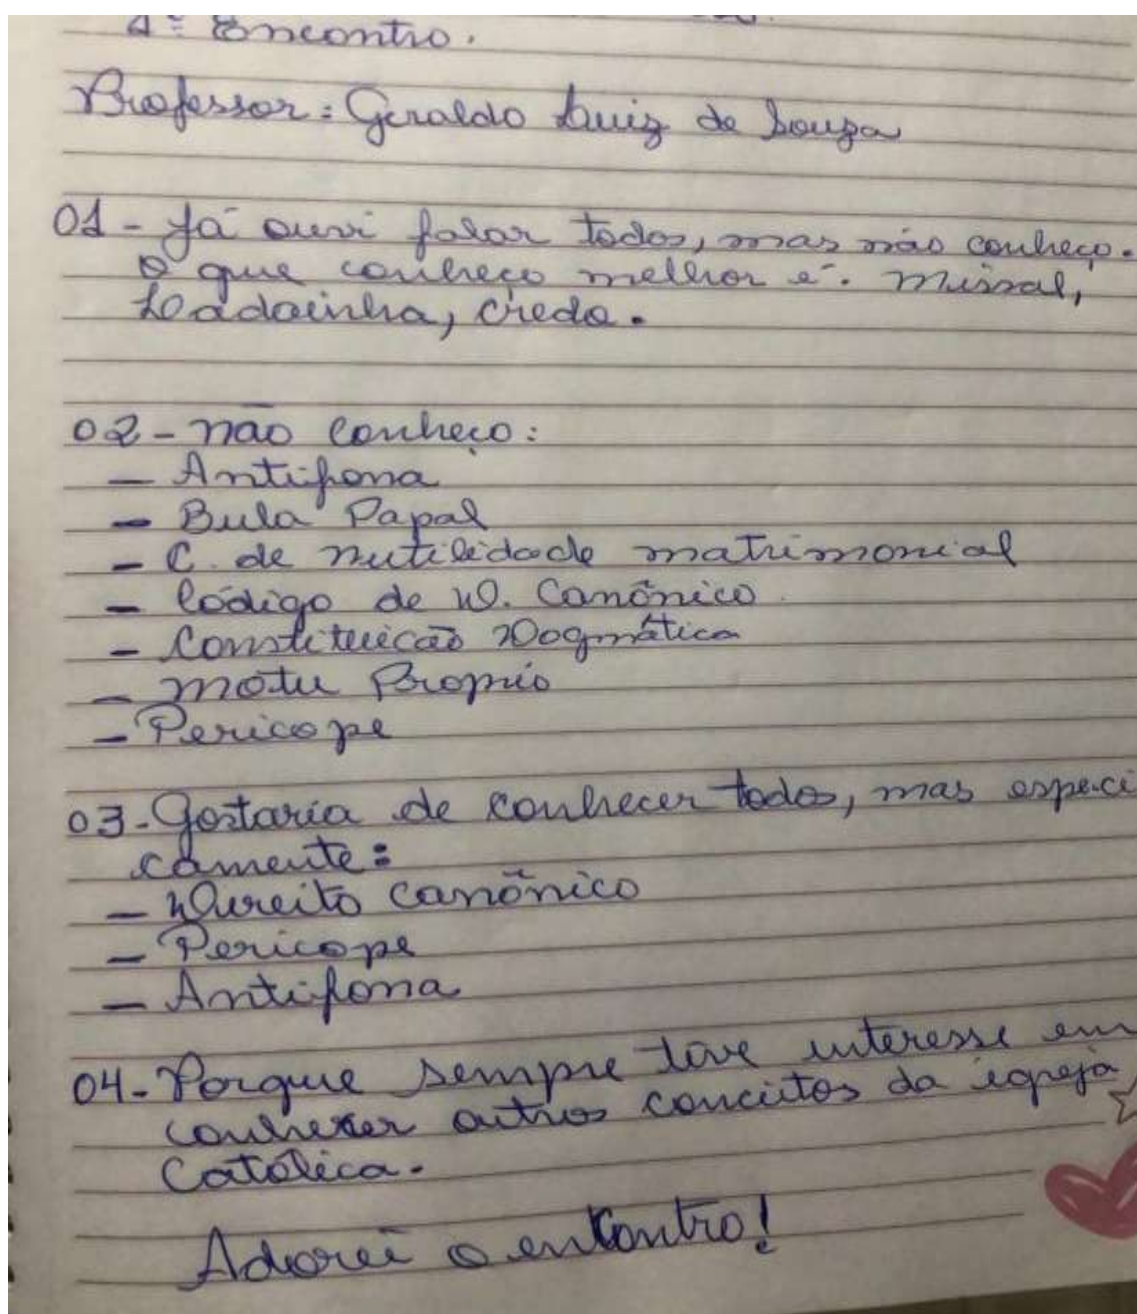 4º Encontro.
Professor: Geraldo Luiz de Souza
01 - Já ouvi falar todos, mas não conheço.
O que conheço melhor é. Missal,
Ladainha, credo.
02 - não conheço:
- Antifona
- Bula Papal
- C. de nutilidade matrimonial
- Código de D. Canônico.
- Constituicão Dogmática
- Motu Proprio
- Pericope
03 - Gostaria de conhecer todos, mas especi
camente:
- Direito canônico
- Pericope
- Antifona
04 - Porque sempre tove interesse em
conhecer outros conceitos da igreja
Católica.
Adorei o encontro!